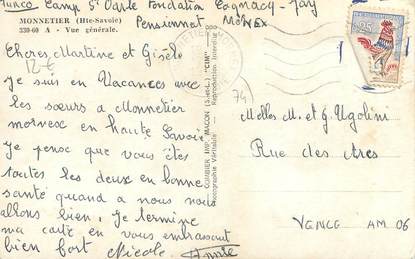 Camp Ste Odile Fondation Cognacq-Jay
Pensionnat Monex
MONNETIER (Hte-Savoie)
330-60 A - Vue générale.
Chères Martine et Gisèle
12€
Je suis en Vacances avec
les sœurs a Monnetier
mornex en haute Savoie
Je pense que vous êtes
toutes les deux en bonne
santé quand a nous nous
allons bien, Je termine
ma carte en vous embrassant
bien fort Nicole Annie
COMBIER IMP. MACON (S.-et-L.) "CIM"
Photographie Véritable - Reproduction Interdite
74
Melles M. et G. Ugolini
Rue des Arcs
VENCE AM 06